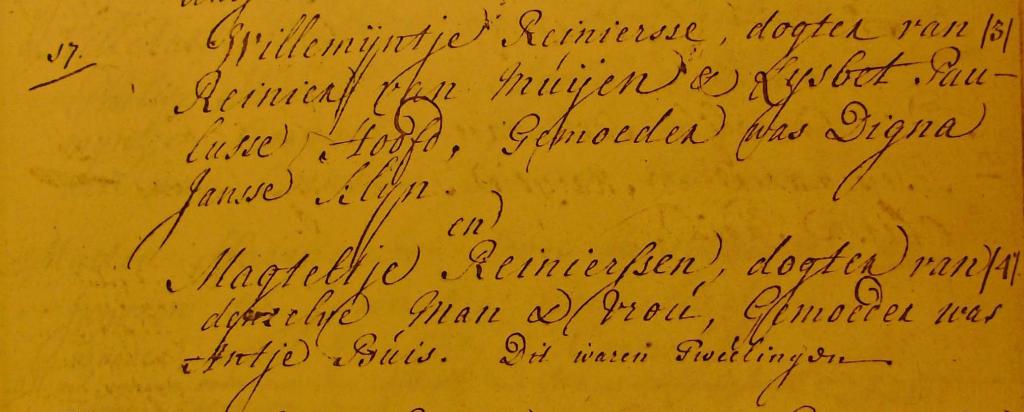 17. Willemijntje Reiniersse, dogter van |3|
Reinier van Muijen & Lysbet Pau-
lusse Hoofd, Gemoeder was Digna
Jansse Klyn.
en
Magteltje Reinierssen, dogter van |4|
dezelve Man & Vrou, Gemoeder was
Antje Buis. Dit waren Tweelingen